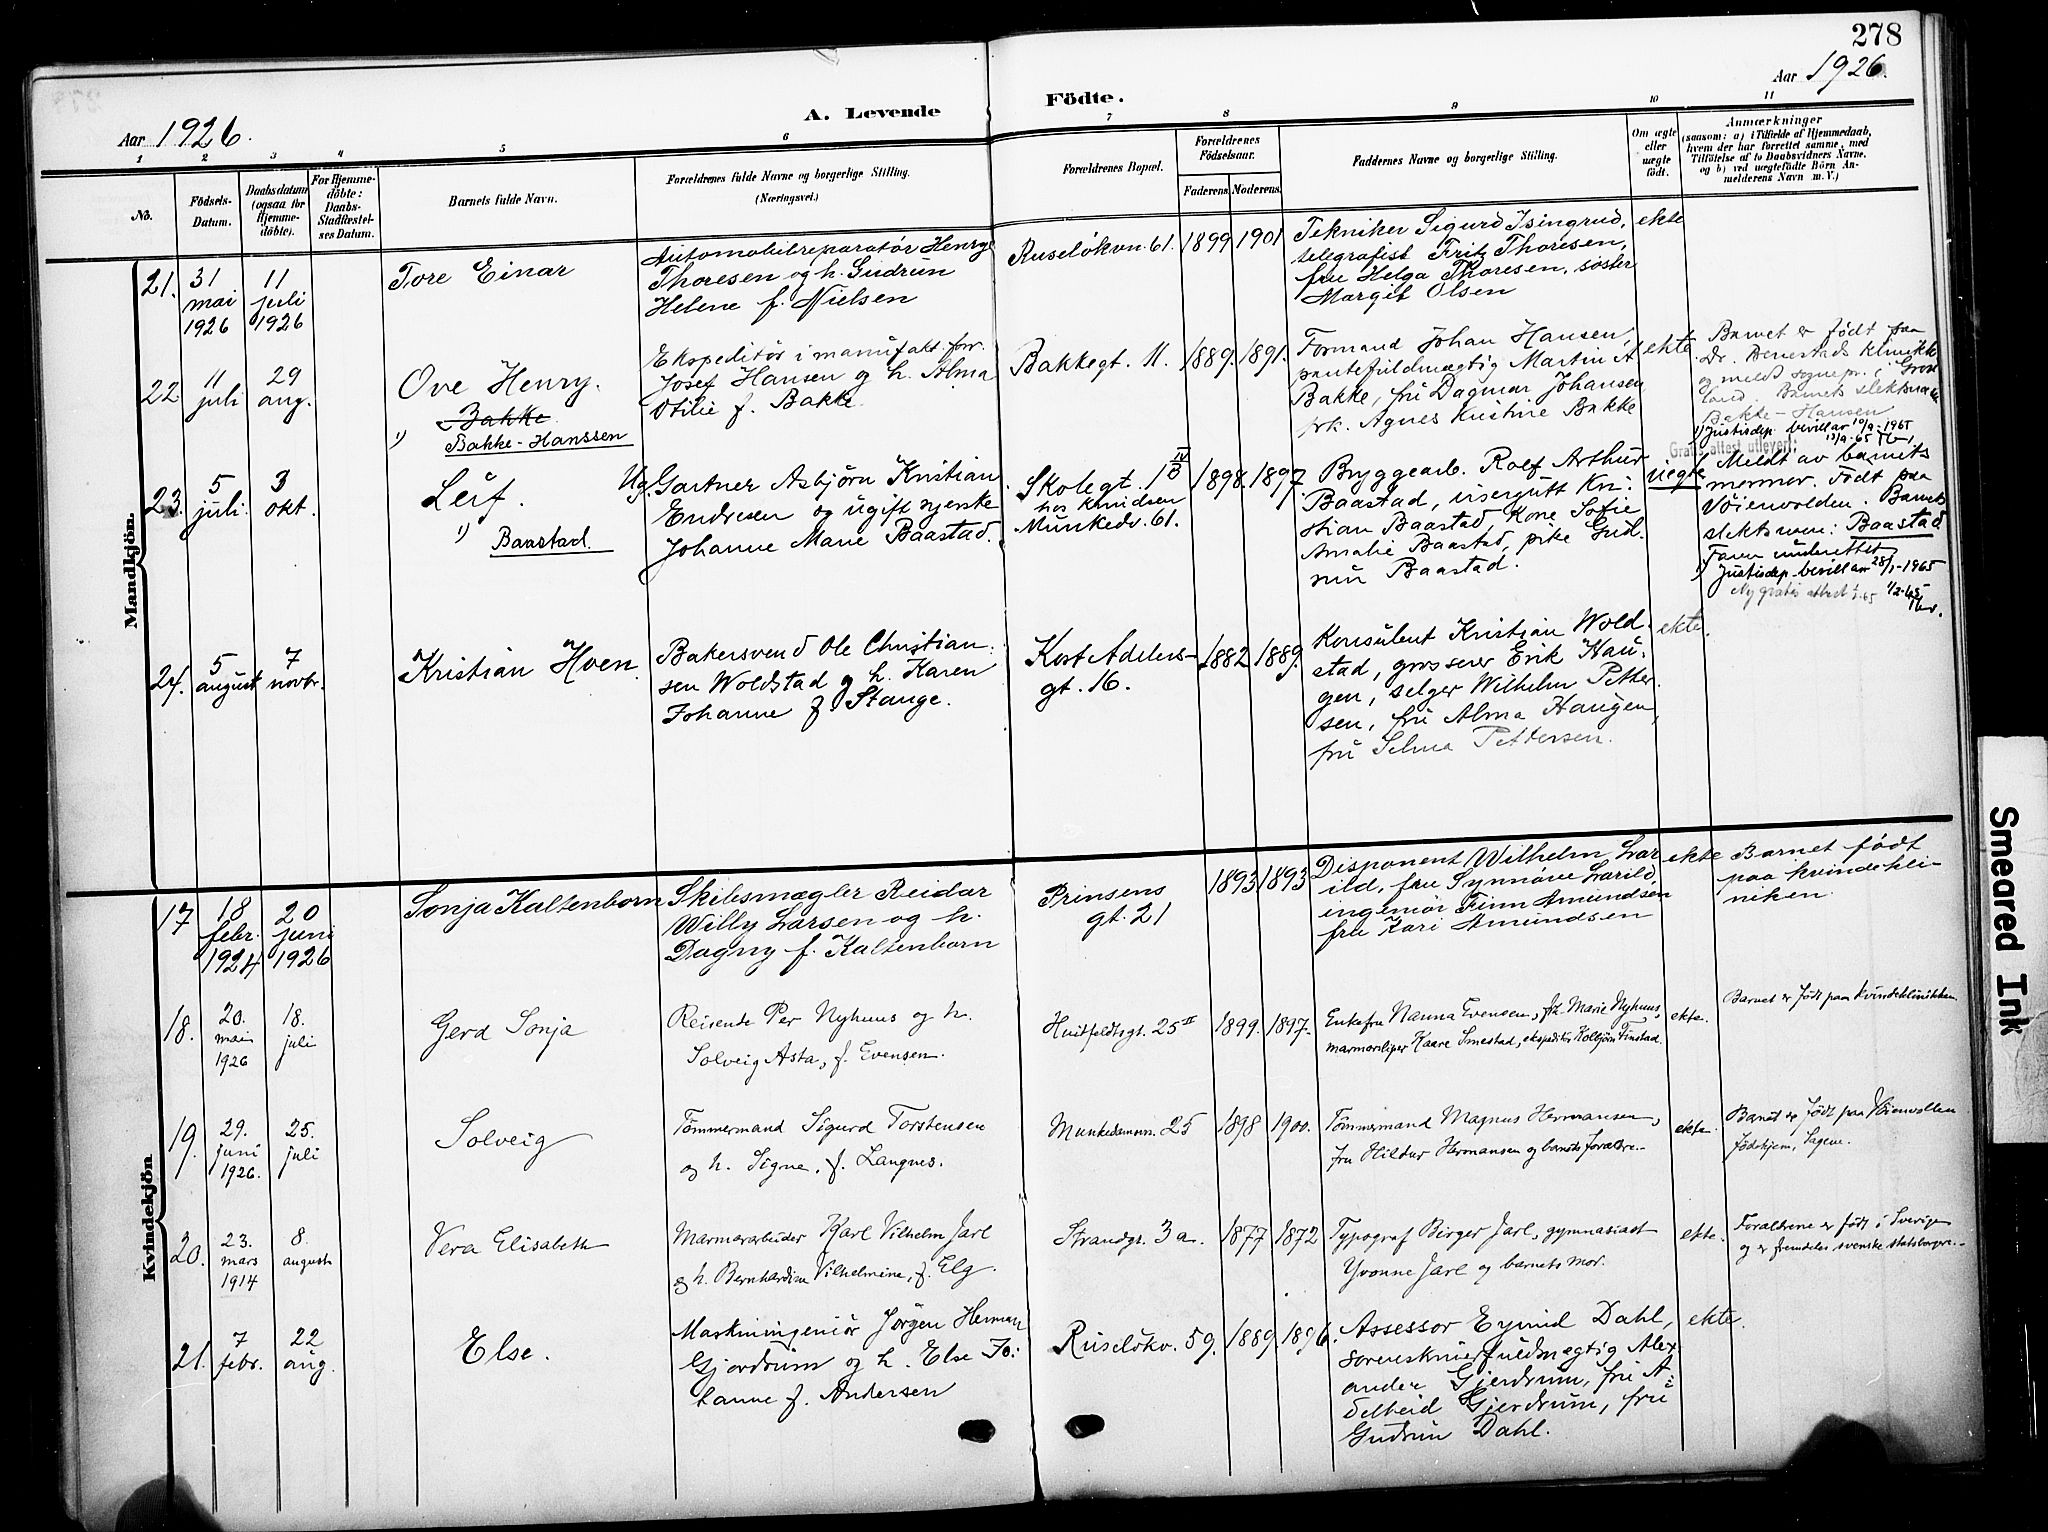 278
Aar 1926.
A. Levende Födte.
Aar 1926.
1 2 3 4 5 6 7 8 9 10 11
No.
Födsels-
Datum.
Daabsdatum
(ogsaa for
Hjemme-
döbte).
For Hjemme-
döbte:
Daabs-
Stadfæstel-
ses Datum.
Barnets fulde Navn.
Forældrenes fulde Navne og borgerlige Stilling.
(Næringsvei.)
Forældrenes Bopæl.
Forældrenes
Födselsaar.
Faderens. Moderens.
Faddernes Navne og borgerlige Stilling.
Om ægte
eller
uægte
födt.
Anmærkninger
(saasom: a) i Tilfælde af Hjemmedaab,
hvem der har forrettet samme, med
Tilföielse af to Daabsvidners Navne,
og b) ved uægtefödte Börn An-
melderens Navn m. V.)
Mandkjön.
21.
31
mai
1926
11
juli
1926
Tore Einar
Automobilreparatör Henry
Thoresen og h. Gudrun
Helene f. Nielsen
Ruselökvn. 61.
1899
1901
Tekniker Sigurd Isingrud,
telegrafist Fritz Thoresen,
fru Helga Thoresen, söster
Margit Olsen
ekte
22
11
juli
29
aug.
Ove Henry.
Bakke
1) Bakke-Hanssen
Ekspeditör i manufakt. forr.
Josef Hansen og h. Alma
Otilie f. Bakke.
Bakkegt. 11.
1889.
1891.
Formand Johan Hansen,
pantefuldmægtig Martin A
Bakke, fru Dagmar Johansen
frk. Agnes Kristine Bakke
ekte.
Barnet er födt paa
Dr. Benestads klinikk
og meldt sognepr. i Grön
land. Barnets slektsnavn
Bakke-Hansen
1) Justisdep. bevill av 10/9-1965
13/9-65
Gratis attest utlevert:
23.
5
juli.
3
okt.
Leif.
1) Baastad.
Ug. Gartner Asbjörn Kristian
Endresen og ugift syerske
Johanne Marie Baastad.
Skolegt. 13 IV
hos Knudsen
Munkedv. 61.
1898.
1897.
Bryggearb. Rolf Arthur
Baastad, visergutt Kri-
stian Baastad, Kone Sofie
Amalie Baastad, pike Gud-
run Baastad.
uegte
Meldt av barnets
mormor. Födt paa
Vöienvolden. Barnets
slektsnavn: Baastad
Faren underrettet
1) Justisdep. bevill am 28/1-1965
Ny gratis attest 1/2.65 1/2-65
24.
5
august
7
novbr.
Kristian Hoen.
Bakersvend Ole Christian-
sen Woldstad og h. Karen
Johanne f. Stange.
Kort Adelers-
gt. 16.
1882
1889.
Konsulent Kristian Wold-
stad, grosserer Erik Hau-
gen, selger Wilhelm Petter-
sen, fru Alma Haugen,
fru Selma Pettersen.
ekte.
Kvindekjön
17
18
febr.
1924
20
juni
1926
Sonja Kaltenborn
Skibsmægler Reidar
Willy Larsen og h.
Dagny f. Kaltenborn
Prinsens
gt. 21
1893
1893
Disponent Wilhelm Lar
ild, fru Synnöve Larild
ingeniör Finn Amundsen
fru Kari Amundsen
ekte
Barnet födt
paa kvindekli-
niken.
18.
20.
mai
1926
18.
juli
Gerd Sonja
Reisende Per Nyhuus og h.
Solveig Asta, f. Evensen.
Huitfeldtsgt. 25 II
1899.
1897.
Enkefru Nanna Evensen, frk. Marie Nyhuus,
marmorsliper Kaare Smestad, ekspeditör Kolbjörn Finstad.
ekte.
Barnet er födt paa Kvindeklinikken.
19.
29.
juni
1926.
25.
juli
Solveig
Tömmermand Sigurd Torstensen
og h. Signe, f. Langnes.
Munkedamsv. 25
1898
1900.
Tömmermand Magnus Hermansen,
fru Hildur Hermansen og barnets forældre.
ekte.
Barnet er födt paa Vöienvollen
födehjem, Sagene.
20.
23.
mars
1914
8.
august
Vera Elisabeth
Marmorarbeider Karl Vilhelm Jarl
og h. Bernhardine Vilhelmine, f. Elg.
Strandgt. 3 a.
1877
1872
Typograf Birger Jarl, gymnasiast
Yvonne Jarl og barnets mor.
ekte.
Forældrene er födt i Sverige
og er fremdeles svenske statsborgere.
21.
7
febr.
22
aug.
Else.
Maskiningeniör Jörgen Herman
Gjerdrum og h. Else Jo-
hanne f. Andersen
Ruselökv. 59.
1889.
1896.
Assessor Eyvind Dahl,
sorenskriverfuldmægtig Alex-
ander Gjerdrum, fru A-
delheid Gjerdrum, fru
Gudrun Dahl.
ekte.
Smeared Ink